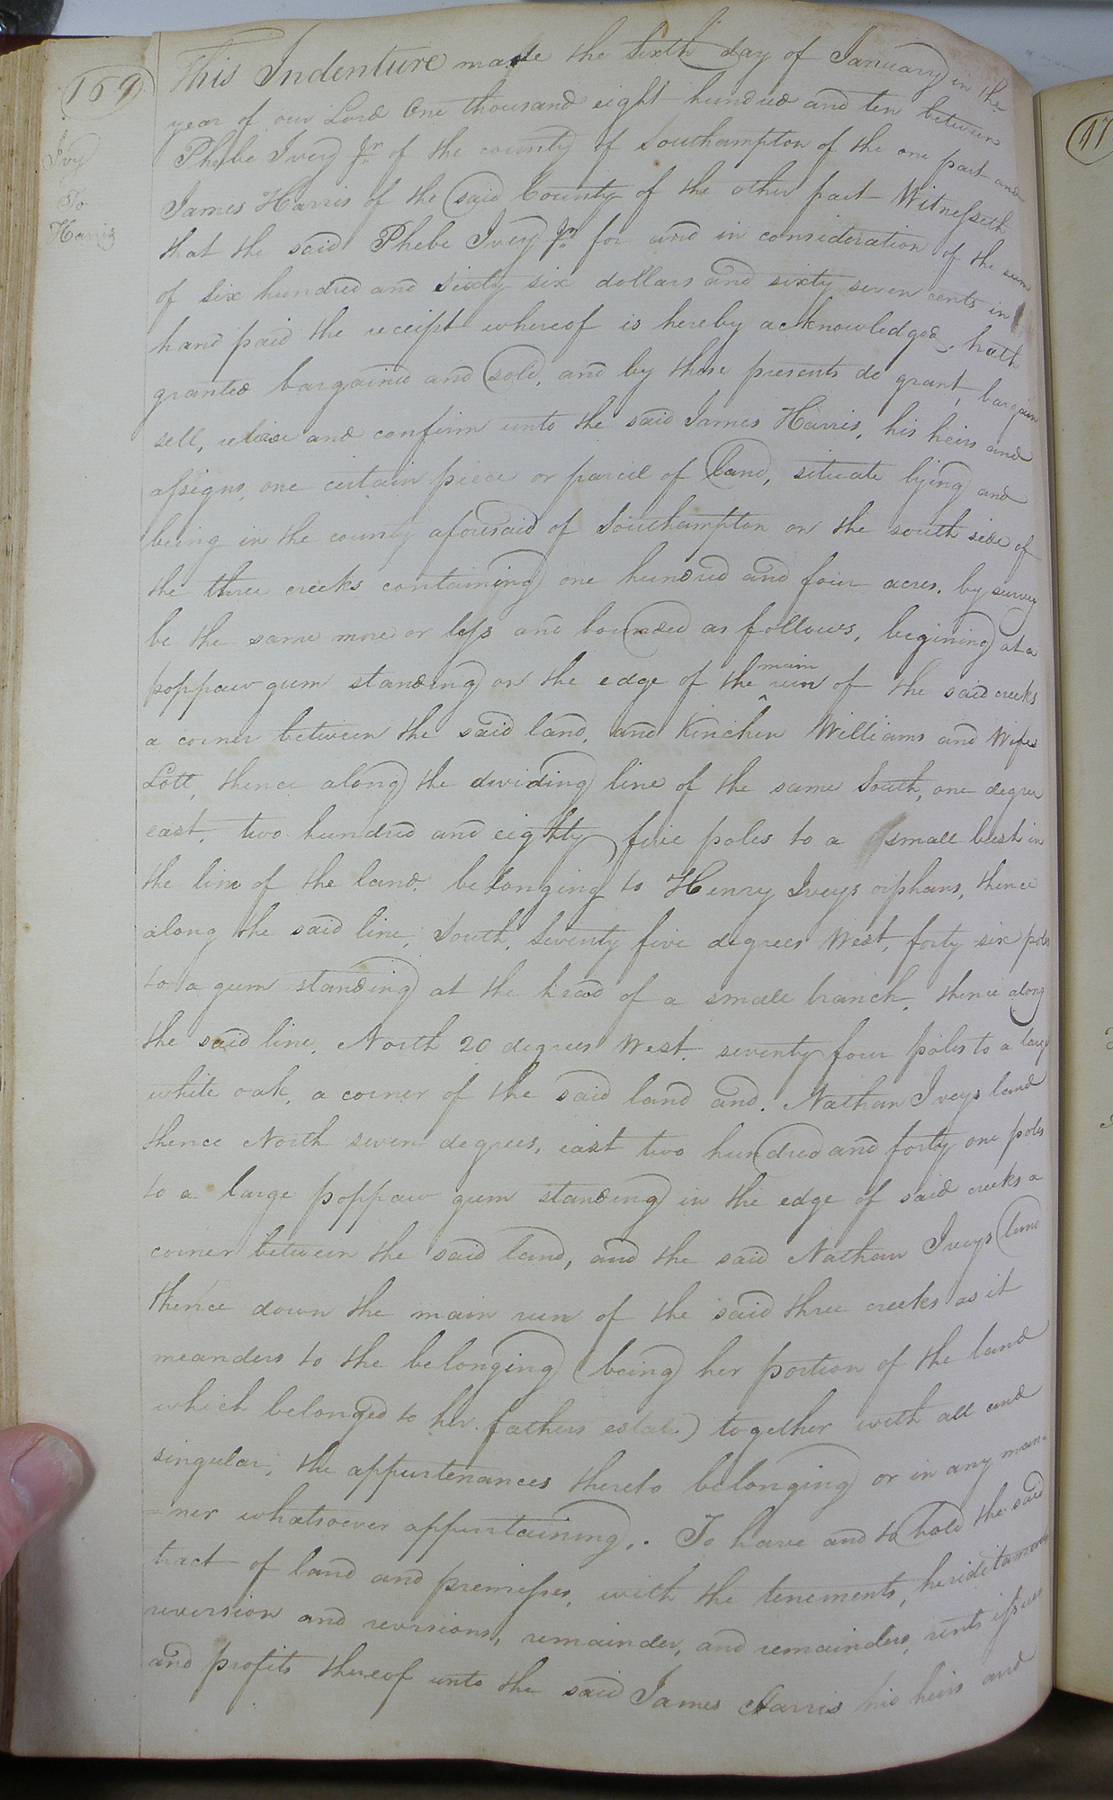 169
Ivy
To
Harris
This Indenture made the Sixth day of January in the
year of our Lord One thousand eight hundred and ten between
Phebe Ivey Jr of the county of Southampton of the one part and
James Harris of the said County of the other part Witnesseth
that the said Phebe Ivey Jr for and in consideration of the sum
of Six hundred and sixty six dollars and sixty seven cents in
hand paid the receipt whereof is hereby acknowledged, hath
granted bargained and sold, and by these presents do grant, bargain
sell, release and confirm unto the said James Harris, his heirs and
assigns, one certain piece or parcel of land, situate lying and
being in the county aforesaid of Southampton on the south side of
the three creeks containing one hundred and four acres. by survey
be the same more or less and bounded as follows, begining at a
poppaw gum standing on the edge of the main run of the said creeks
a corner between the said land, and Kinchen Williams and Wifes
Lott, thence along the dividing line of the same South, one degree
east, two hundred and eighty five poles to a small bush in
the line of the land belonging to Henry Iveys orphans, thence
along the said line, South, Seventy five degrees West, forty six poles
to a gum standing at the head of a small branch, thence along
the said line, North 20 degrees West. seventy four poles to a large
white oak, a corner of the said land and. Nathan Iveys land
thence North seven degrees, east two hundred and forty one poles
to a large poppaw gum standing in the edge of said creeks a
corner between the said land, and the said Nathan Iveys land
thence down the main run of the said three creeks as it
meanders to the belonging (being her portion of the land
which belonged to her fathers estate) together with all and
singular, the appurtenances thereto belonging or in any man-
=ner whatsoever appurtaining,. To have and to hold the said
tract of land and premises, with the tenements, hereditaments
reversion and reversions, remainder, and remainders, rents issues
and profits thereof unto the said James Harris his heirs and
17